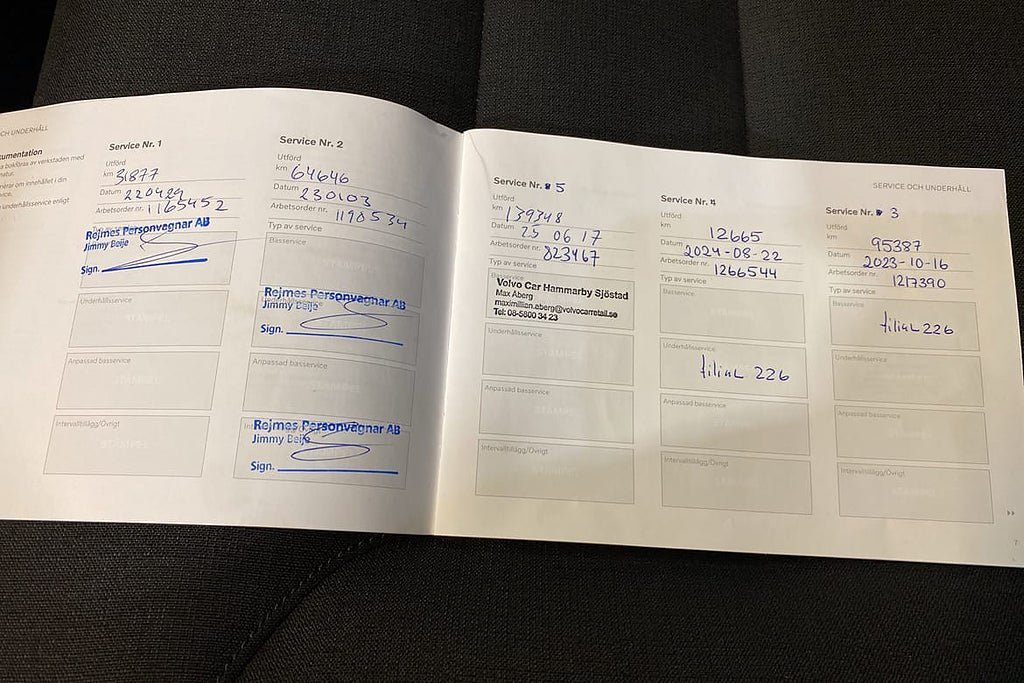 CH UNDERHÅLL
kumentation
Service Nr. 1
Utförd
km 31877
Datum 220429
Arbetsorder nr. 1165452
Rejmes Personvagnar AB
Jimmy Beije
Sign.
Underhållsservice
Anpassad basservice
Intervalltillägg/Övrigt
STÄMPEL
Service Nr. 2
Utförd
km 64646
Datum 230103
Arbetsorder nr. 1190534
Typ av service
Basservice
STÄMPEL
Rejmes Personvagnar AB
Jimmy Beije
Sign.
Anpassad basservice
Rejmes Personvagnar AB
Jimmy Beije
Sign.
Service Nr. 5
Utförd
km 139348
Datum 25 06 17
Arbetsorder nr. 823467
Typ av service
Basservice
Volvo Car Hammarby Sjöstad
Max Aberg
maximilian.aberg@volvocarretail.se
Tel: 08-5800 34 23
Underhållsservice
STÄMPEL
Anpassad basservice
STÄMPEL
Intervalltillägg/Övrigt
STÄMPEL
Service Nr. 4
Utförd
km 12665
Datum 2024-08-22
Arbetsorder nr. 1266544
Typ av service
Basservice
Underhållsservice
filial 226
Anpassad basservice
Intervalltillägg/Övrigt
SERVICE OCH UNDERHÅLL
Service Nr. 3
Utförd
km 95387
Datum 2023-10-16
Arbetsorder nr. 1217390
Typ av service
Basservice
filial 226
Underhållsservice
Anpassad basservice
Intervalltillägg/Övrigt
STÄMPEL
7